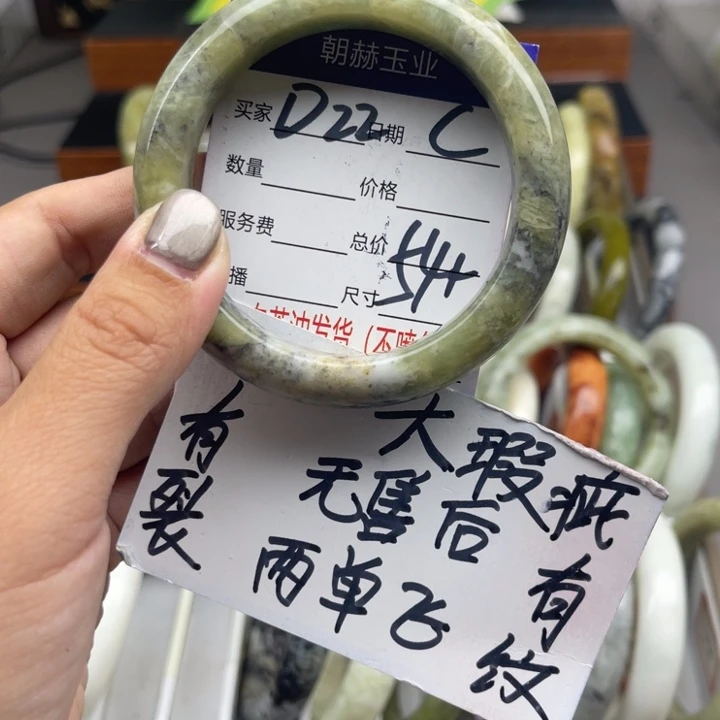 朝赫玉业
买家 D22 日期 C
数量 价格
服务费 总价
播 尺寸 54+
发货(不
有裂
大瑕疵
无售后
有纹
两单飞